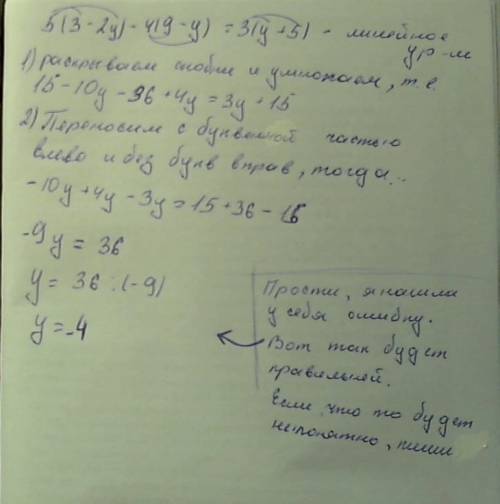 5(3-2y)-4(9-y) = 3(y+5) - линейное
ур-м
1) раскрываем скобки и умножаем, т.е.
15-10y-36+4y=3y+15
2) Переносим с буквенной частью
влево и без букв вправ, тогда..
-10y+4y-3y=15+36-15
-9y = 36
y = 36 :(-9)
y=-4
Прости, я нашла
у себя ошибку.
Вот так будет
правильней.
Если что то будет
непонятно, пиши